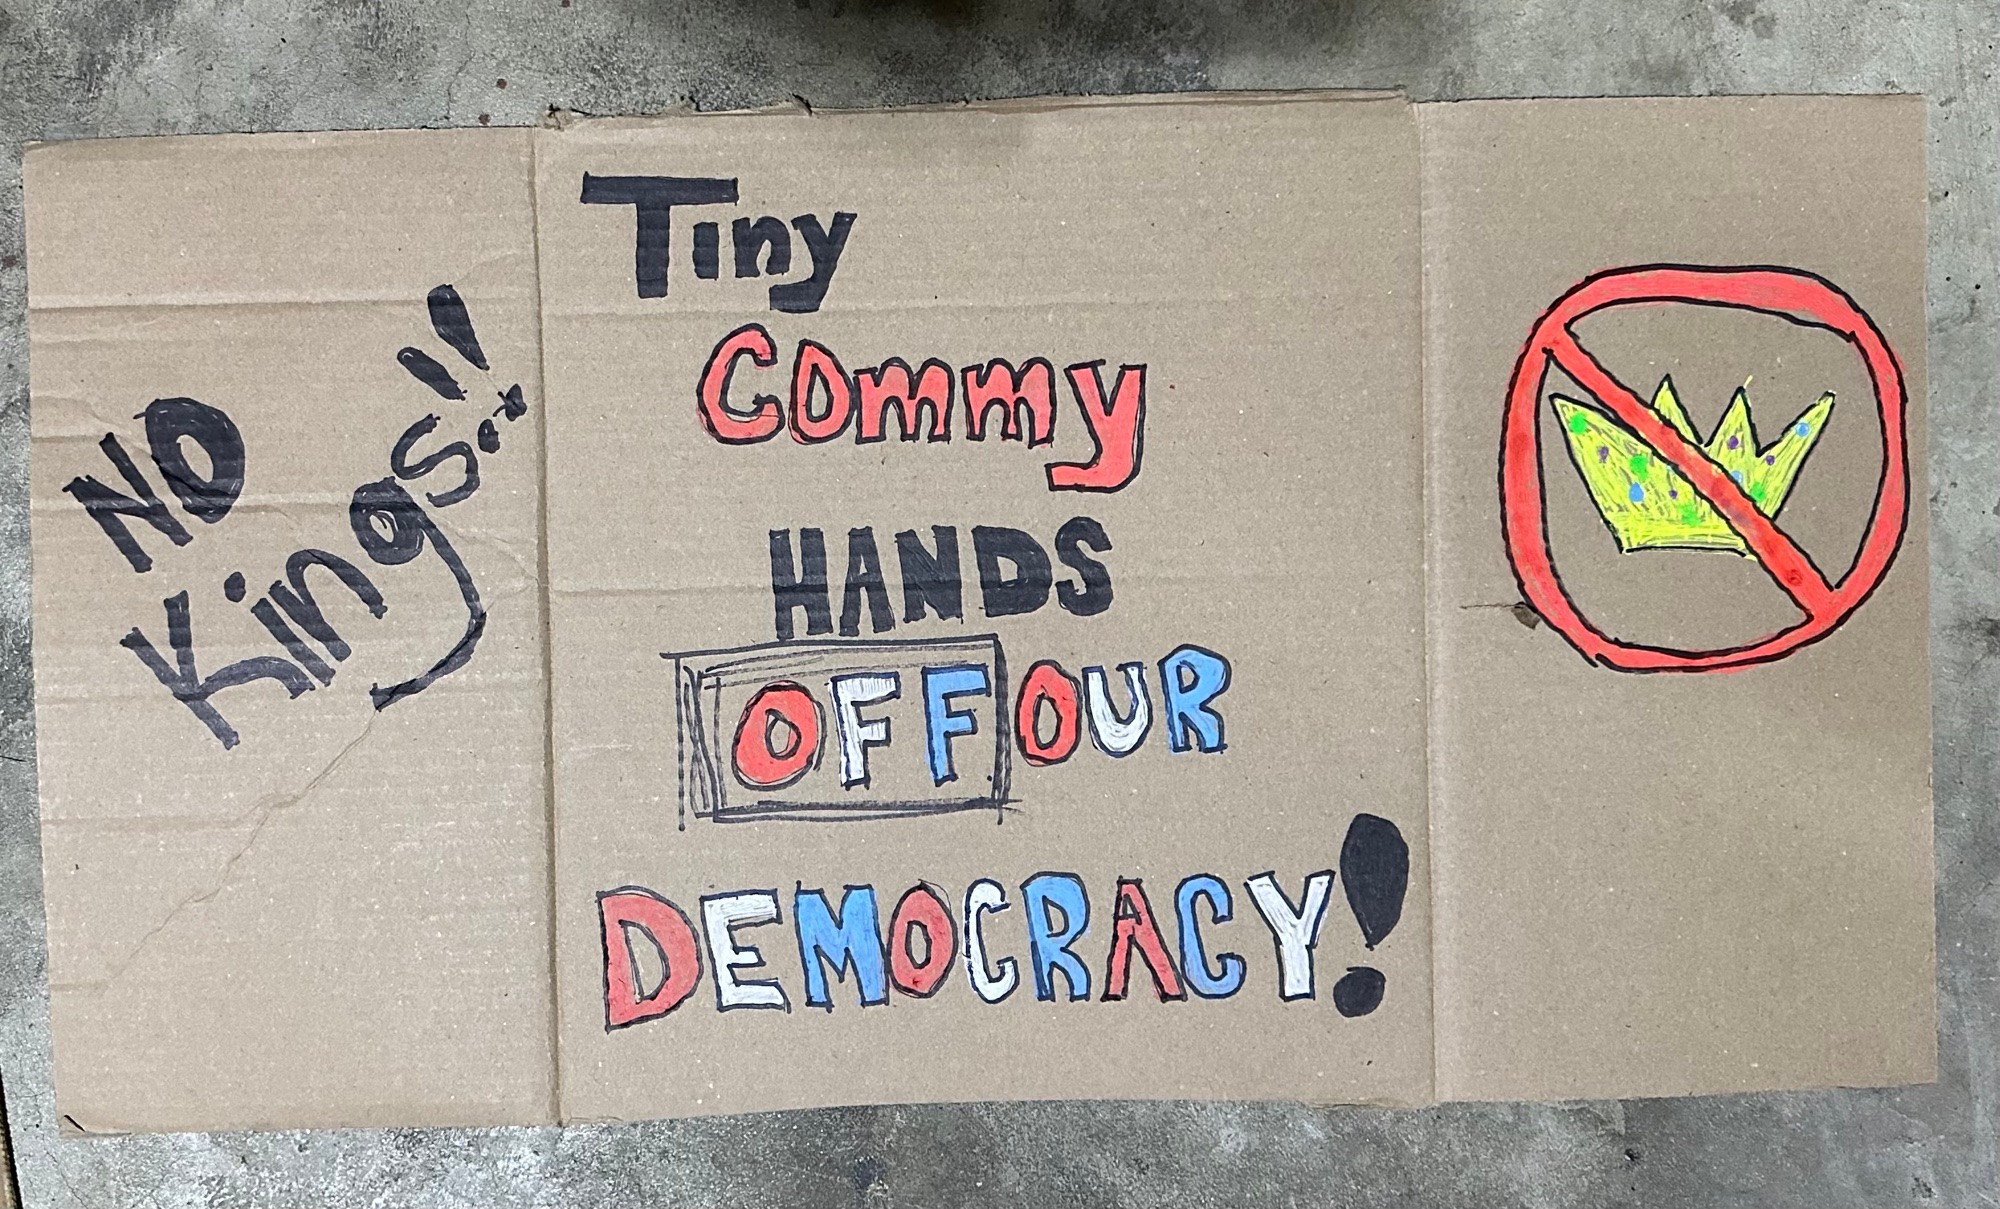 NO
Kings!!
Tiny
Commy
HANDS
OFF OUR
DEMOCRACY!